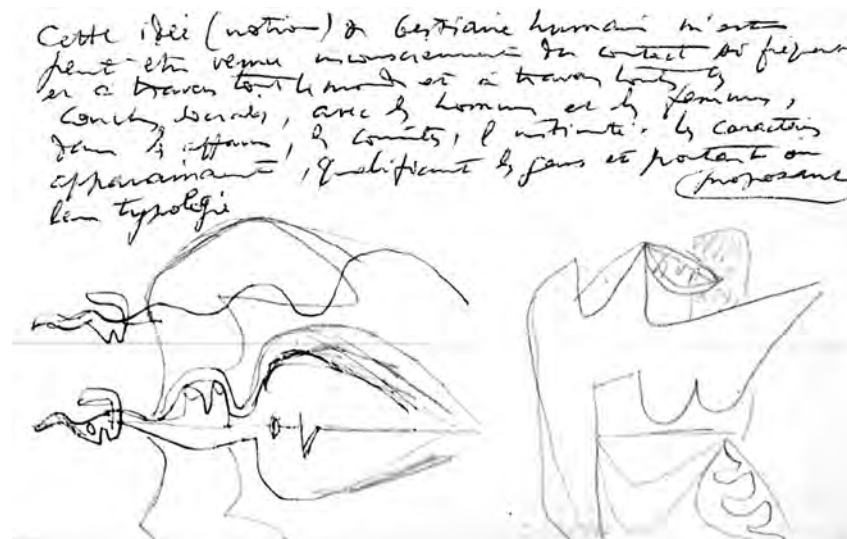 Cette idée (notion) de bestiaire humain m'est
peut-être venue inconsciemment du contact si fréquent
et à travers tout le monde et à travers toutes les
couches sociales, avec les hommes et les femmes,
dans les affaires, les comités, l'intimité. Les caractères
apparaissant, qualifiant les gens et portant ou
(proposant
leur typologie